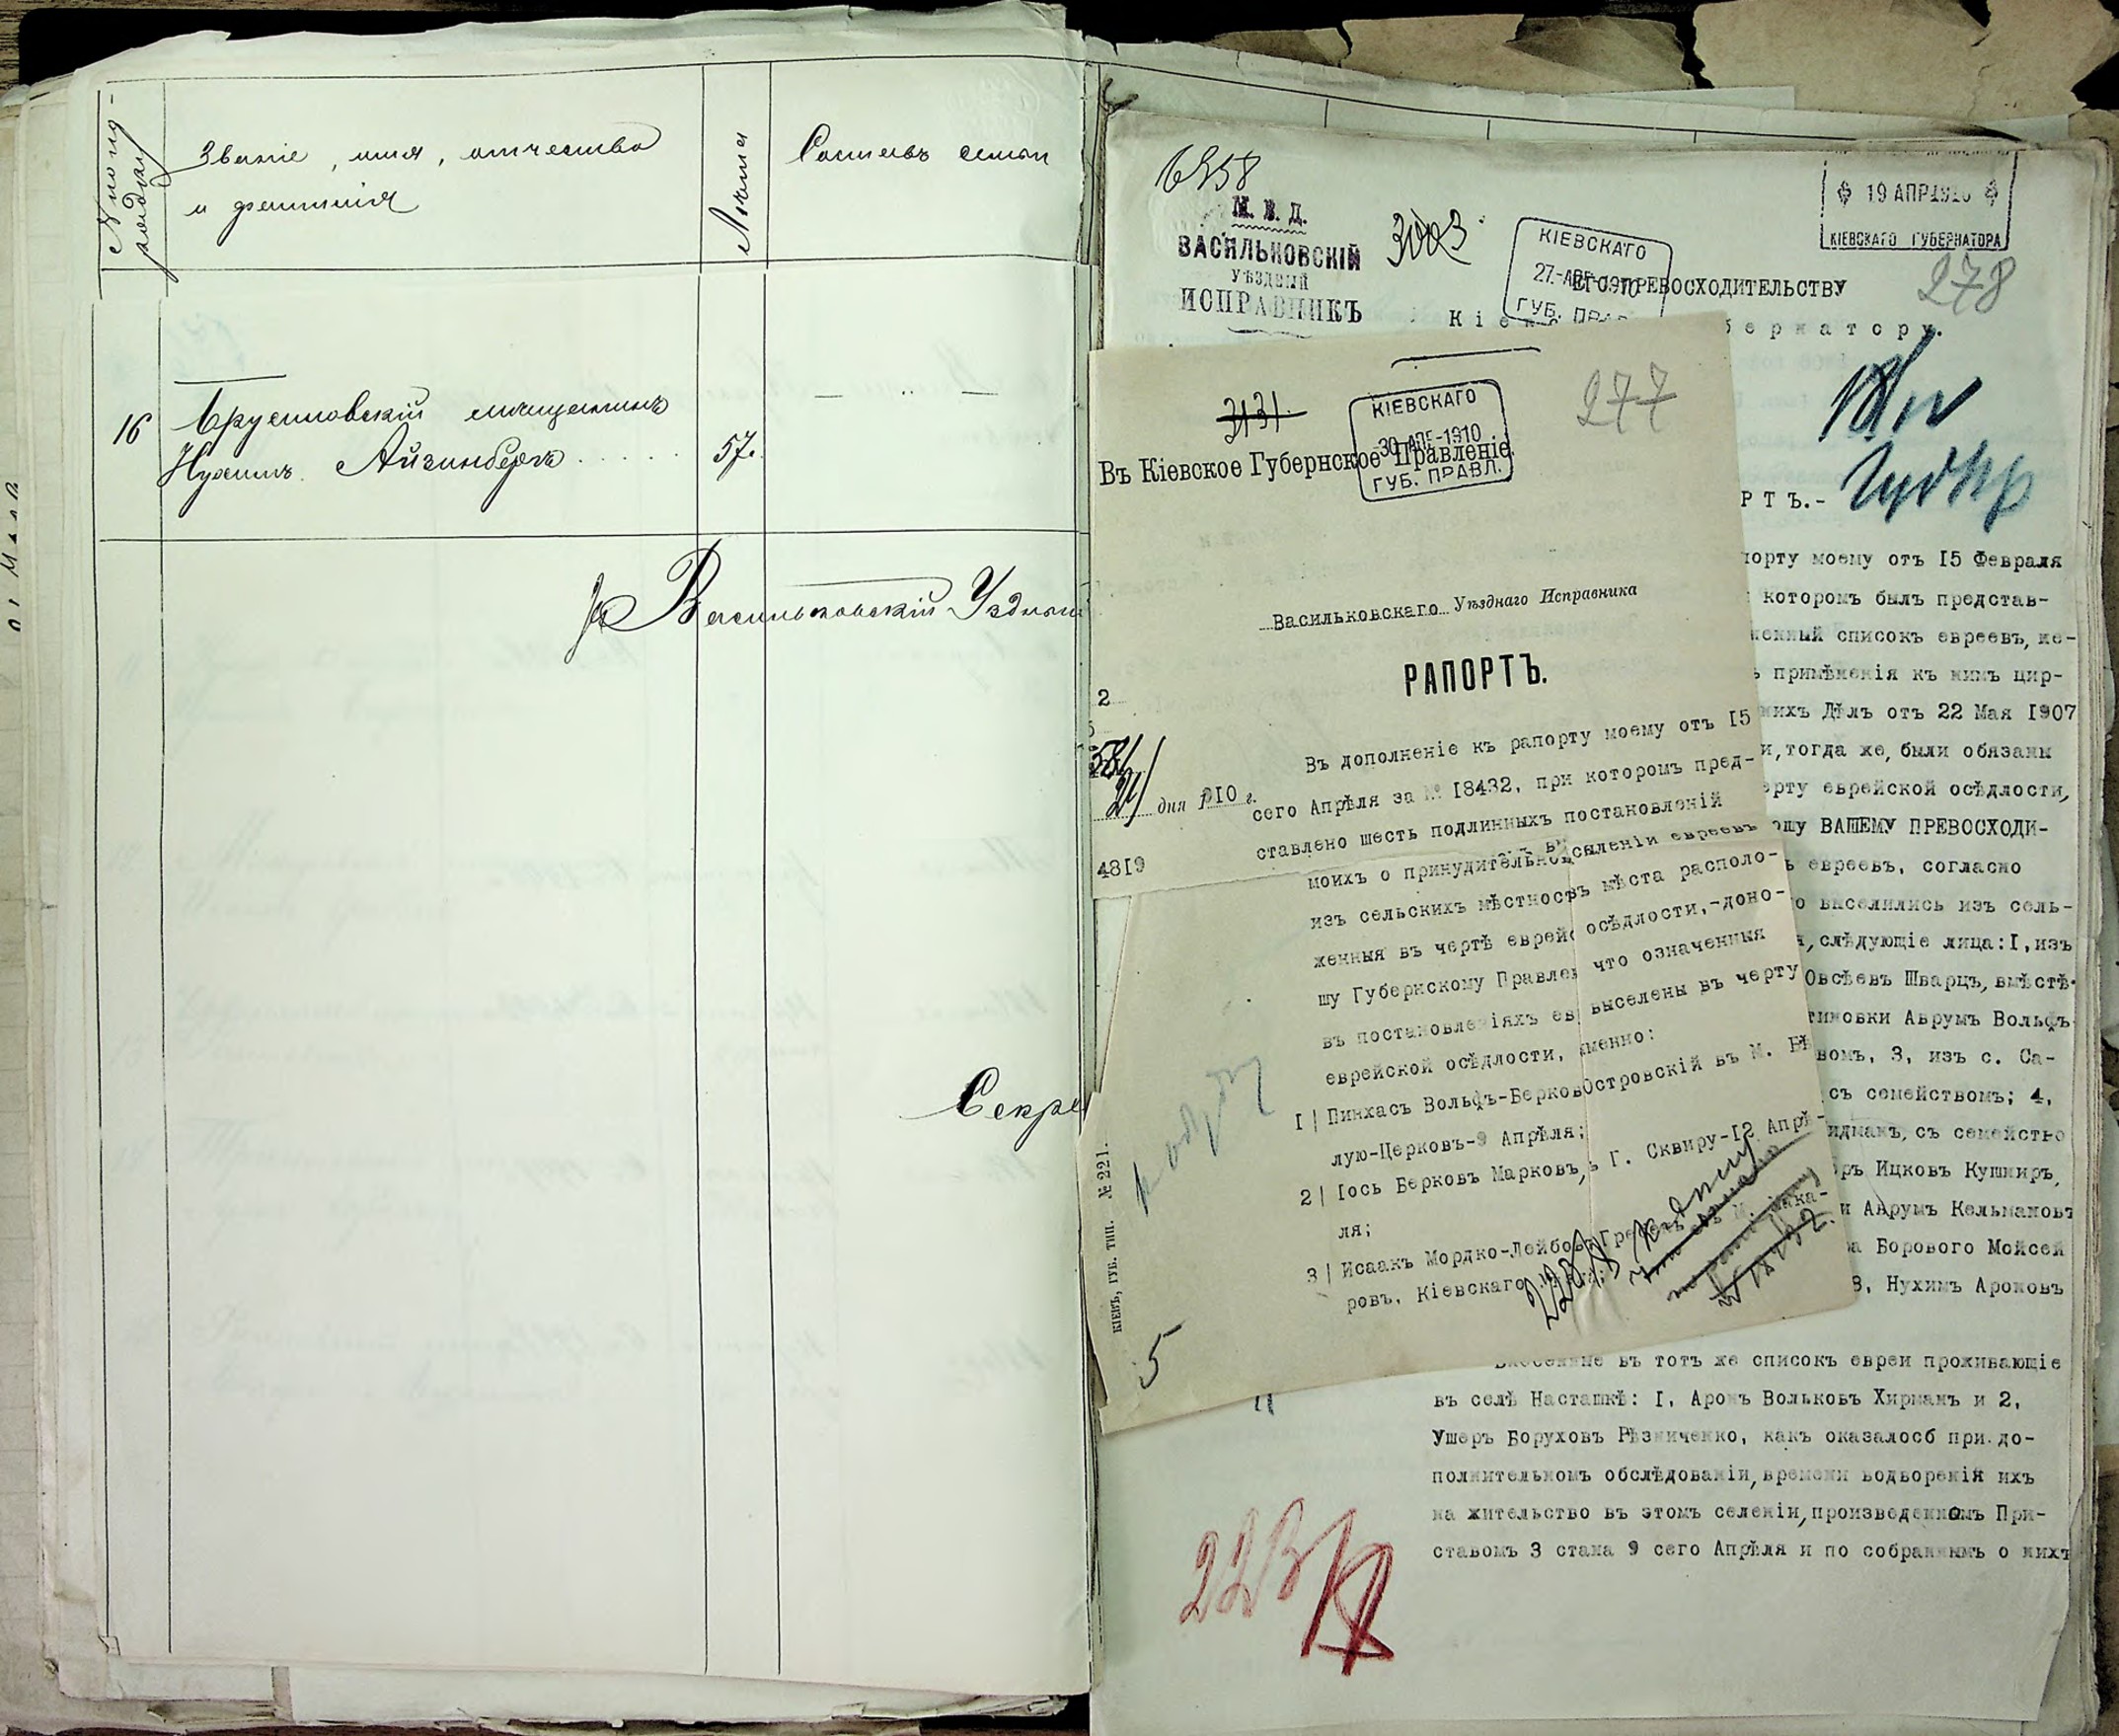 № по по-
рядку
Званіе, имя, отчество
и фамилія
Лѣта
Составъ семьи
16
Брусиловскій мѣщанинъ
Нухимъ Айзинбергъ
57.
Васильковскій Уѣздный
Секре
6358
М. В. Д.
ВАСИЛЬКОВСКІЙ
УѢЗДНЫЙ
ИСПРАВНИКЪ
КІЕВСКАГО
27.-АПР-1910
ГУБ. ПРА
19 АПР 1910
КІЕВСКАГО ГУБЕРНАТОРА
278
ЕГО ПРЕВОСХОДИТЕЛЬСТВУ
Кіев бернатору.
РТЪ.-
порту моему отъ I5 Февраля
которомъ былъ представ-
менный список евреевъ, не-
примѣненія къ нимъ цир-
нихъ Дѣлъ отъ 22 Мая I907
и, тогда же, были обязаны
ерту еврейской осѣдлости,
ошу ВАШЕМУ ПРЕВОСХОДИ-
ь евреевъ, согласно
о выселились изъ сель-
, слѣдующіе лица: I, изъ
Овсѣевъ Шварцъ, вмѣстѣ
тиновки Аврумъ Вольфъ
вомъ, 3, изъ с. Са-
съ семействомъ; 4,
идманъ, съ семейство
ръ Ицковъ Кушниръ,
и Аврумъ Кельмановъ
а Борового Мойсей
8, Нухимъ Ароновъ
Внесенные въ тотъ же список евреи проживающіе
въ селѣ Насташкѣ: I, Аронъ Вольковъ Хирманъ и 2,
Ушеръ Боруховъ Рѣзниченко, какъ оказалосб при до-
полнительномъ обслѣдованіи, времени водворенія ихъ
на жительство въ этомъ селеніи, произведенномъ При-
ставомъ 3 стана 9 сего Апрѣля и по собраннымъ о нихъ
223
277
3131.
КІЕВСКАГО
30 АПР-1910
ГУБ. ПРАВЛ.
Въ Кіевское Губернское Правленіе.
Васильковскаго Уѣзднаго Исправника
РАПОРТЪ.
2
21 дня 1910 г.
4819
Въ дополненіе къ рапорту моему отъ I5
сего Апрѣля за № I8432, при которомъ пред-
ставлено шесть подлинныхъ постановленій
моихъ о принудительномъ выселеніи евреевъ
изъ сельскихъ мѣстностъ мѣста располо-
женныя въ чертѣ еврейс осѣдлости,-доно-
шу Губернскому Правлен что означенныя
въ постановленіяхъ ев выселены въ черту
еврейской осѣдлости, именно:
I| Пинхасъ Вольфъ-Берковъ Островскій въ М. Бѣ
лую-Церковъ-9 Апрѣля;
2| Іось Берковъ Марковъ, ъ Г. Сквиру-I2 Апрѣ-
ля;
3| Исаакъ Мордко-Лейбовъ Гре въ М. Мака-
ровъ, Кіевскаго
КІЕВЪ, ГУБ. ТИП. № 221.
5